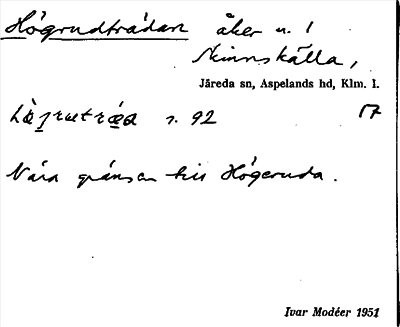 Högrudträdan åker n. 1
Skinnskälla,
Järeda sn, Aspelands hd, Klm. l.
s. 92 17
Nära gränsen till Högeruda.
Ivar Modéer 1951